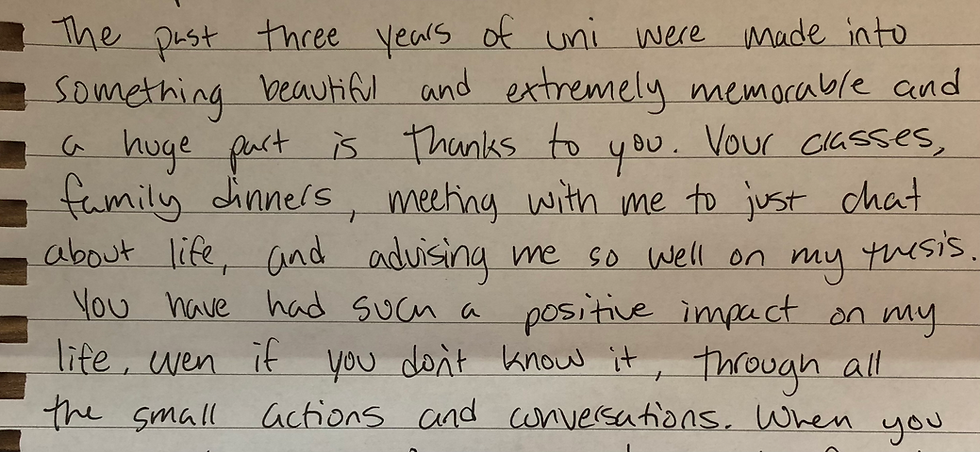 The past three years of uni were made into
something beautiful and extremely memorable and
a huge part is thanks to you. Your classes,
family dinners, meeting with me to just chat
about life, and advising me so well on my thesis.
You have had such a positive impact on my
life, even if you don't know it, through all
the small actions and conversations. When you